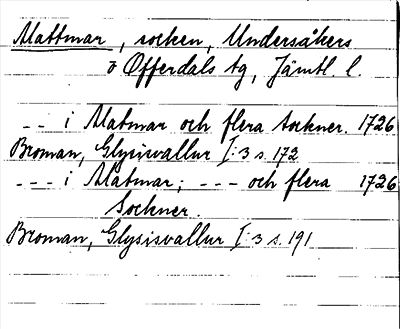 Mattmar, socken, Undersåkers
o Offerdals tg, Jämtl. l.
-- i Matmar och flera Sockner. 1726
Broman, Glysisvallur I:3 s. 172
--- i Måtmar; --- och flera 1726
Sockner.
Broman, Glysisvallur I:3 s. 191